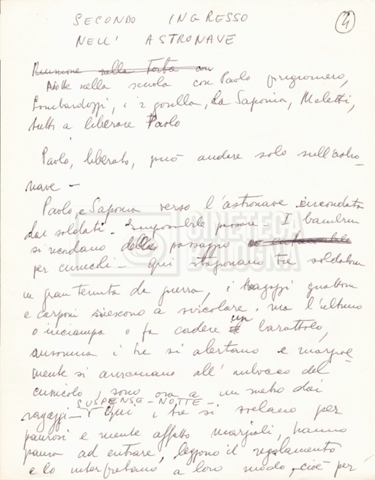 SECONDO INGRESSO
NELL'ASTRONAVE
4
Riunione nella Torta con
Notte nella scuola con Paolo prigioniero,
Bombardozzi, i 2 gorilla, la Saponia, Meletti,
tutti a liberare Paolo
Paolo, liberato, può andare solo sull'astro
nave -
Paolo e Saponia verso l'astronave circondata
dai soldati. Impossibile passare. I bambini
si ricordano del passaggio
per cunicoli - qui stazionano tre soldatoni
in gran tenuta da guerra, i ragazzi gattoni
e carponi riescono a svicolare. ma l'ultimo
o inciampa o fa cadere un barattolo,
insomma i tre si allertano e marzial
mente si avvicinano all'imbocco del
cunicolo, sono ora a un metro dai
ragazzi - SUSPENSE - NOTTE - Qui i tre si svelano per
paurosi e mente affatto marziali, hanno
paura ad entrare, leggono il regolamento
e lo interpretano a loro modo, cioè per
CINETECA
DI BOLOGNA